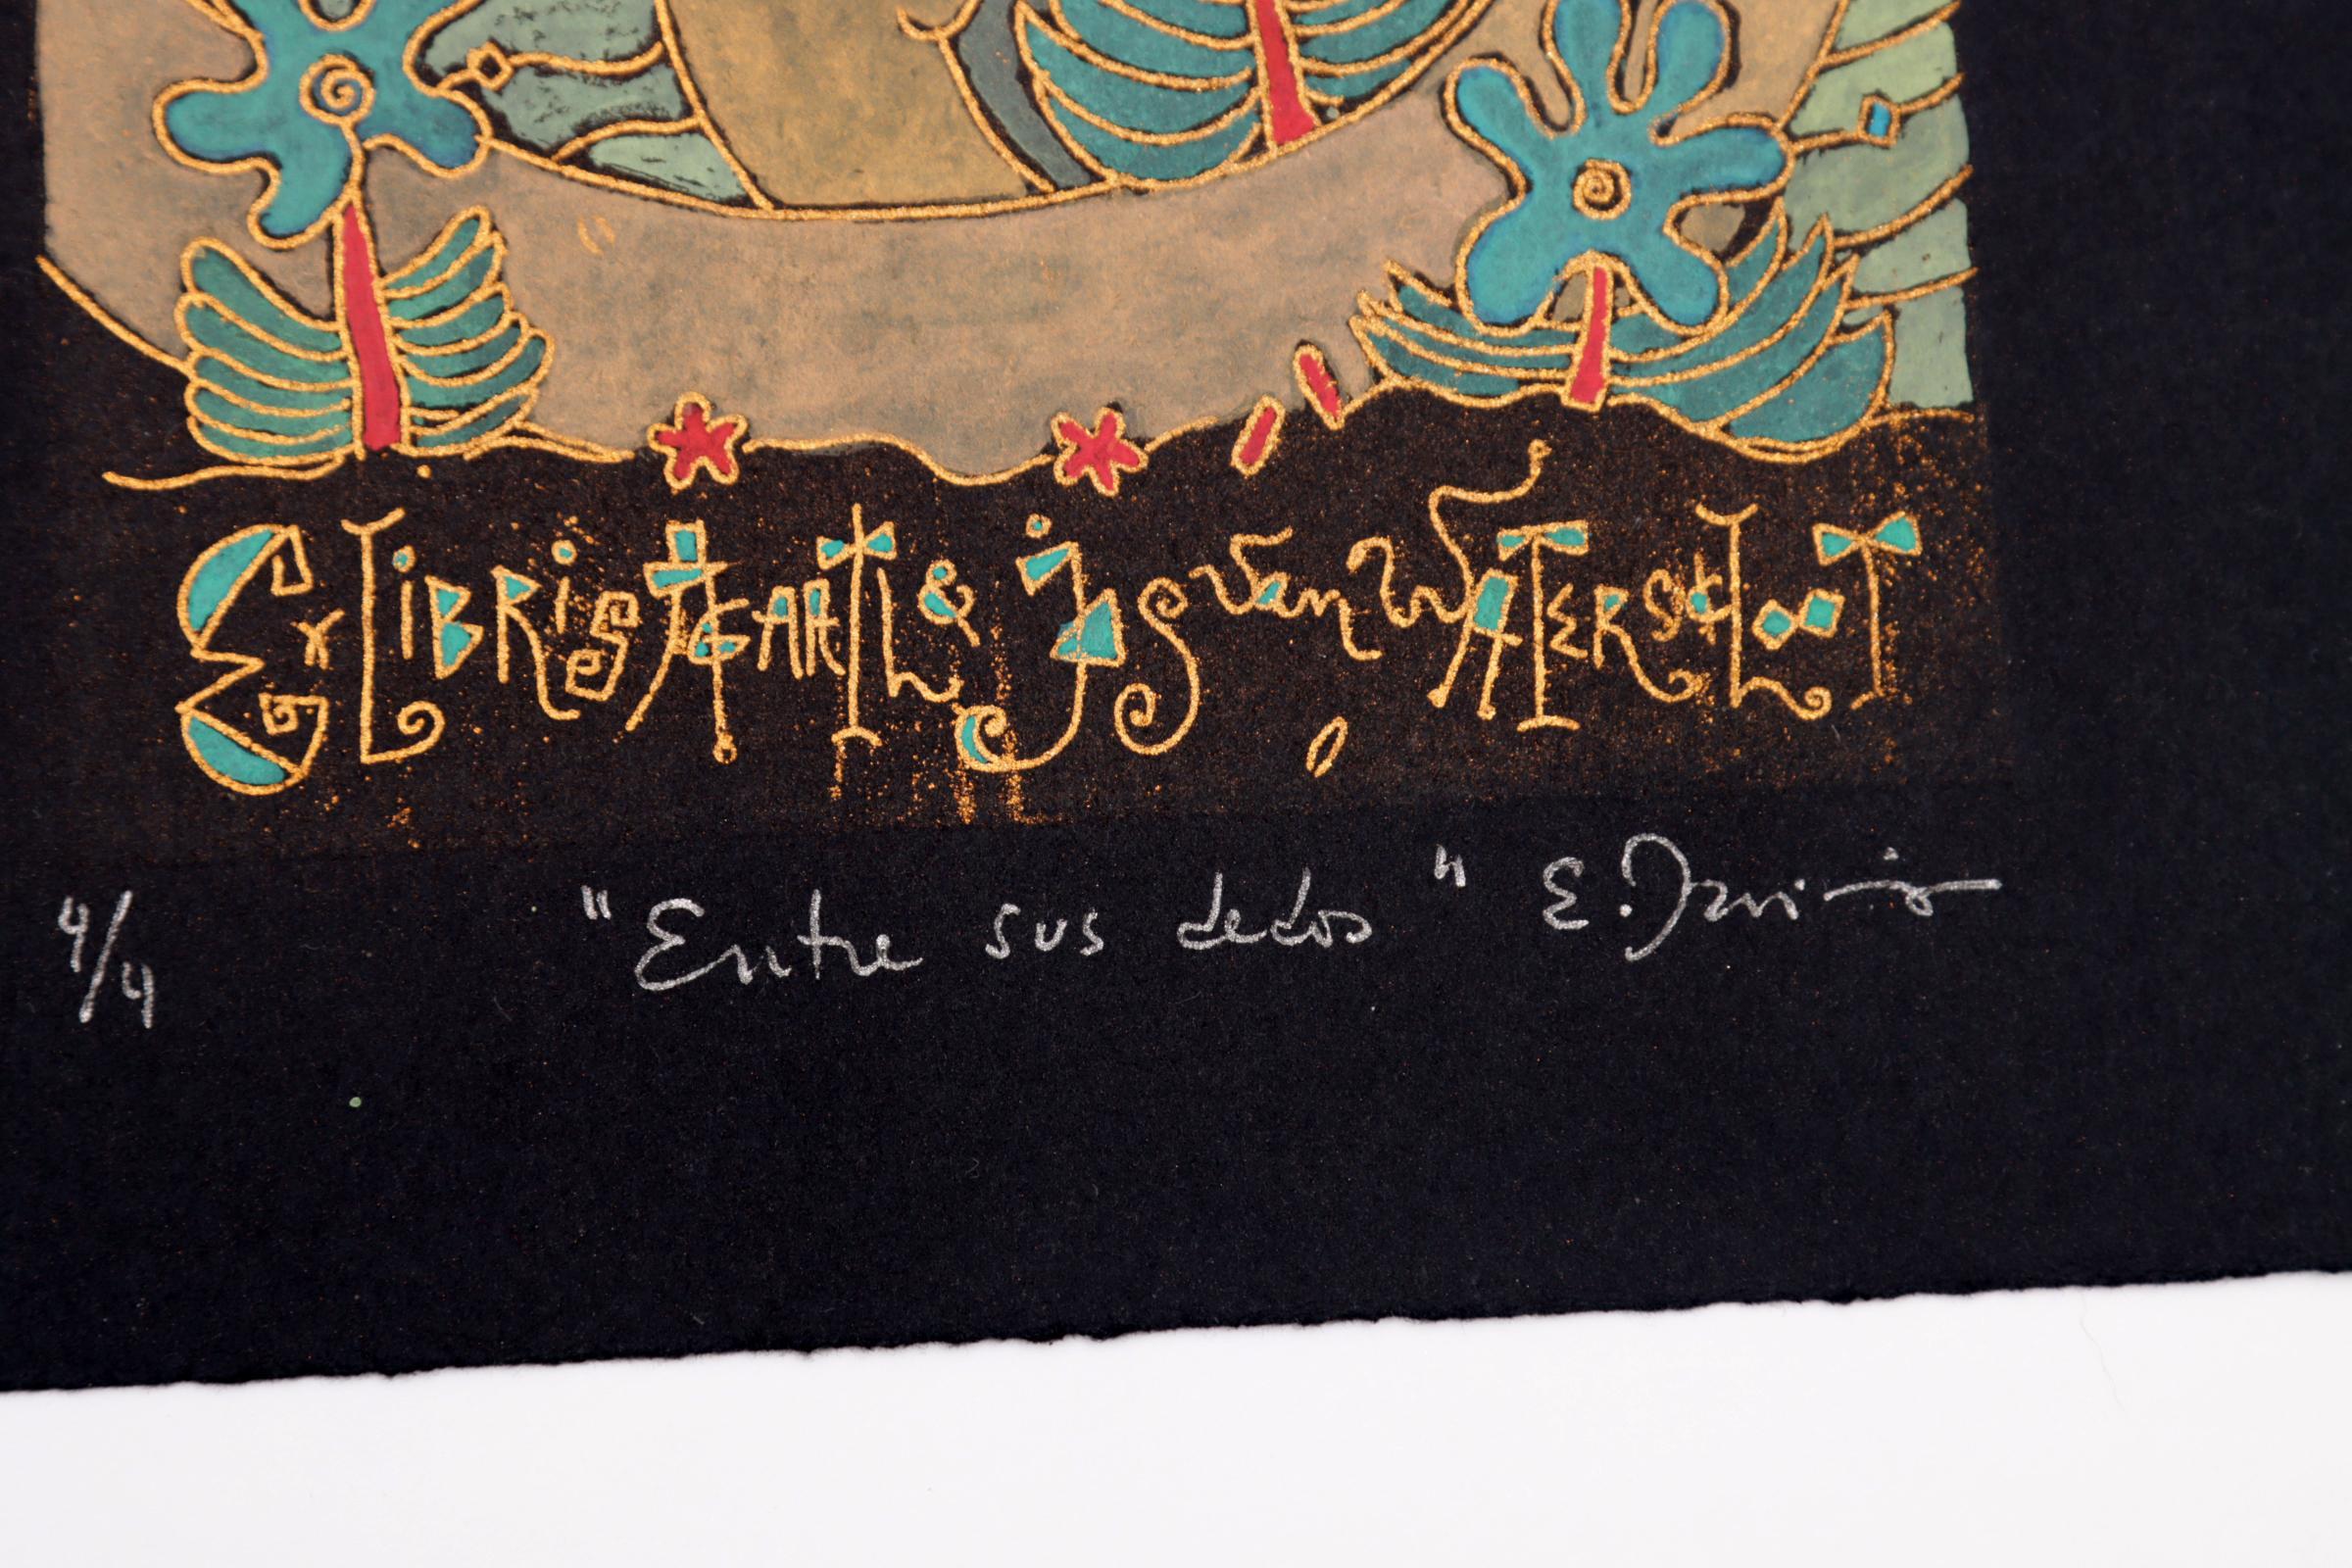 Ex Libris Geart & Jos van WATERSCHOOT
4/4 "Entre sus dedos" E.